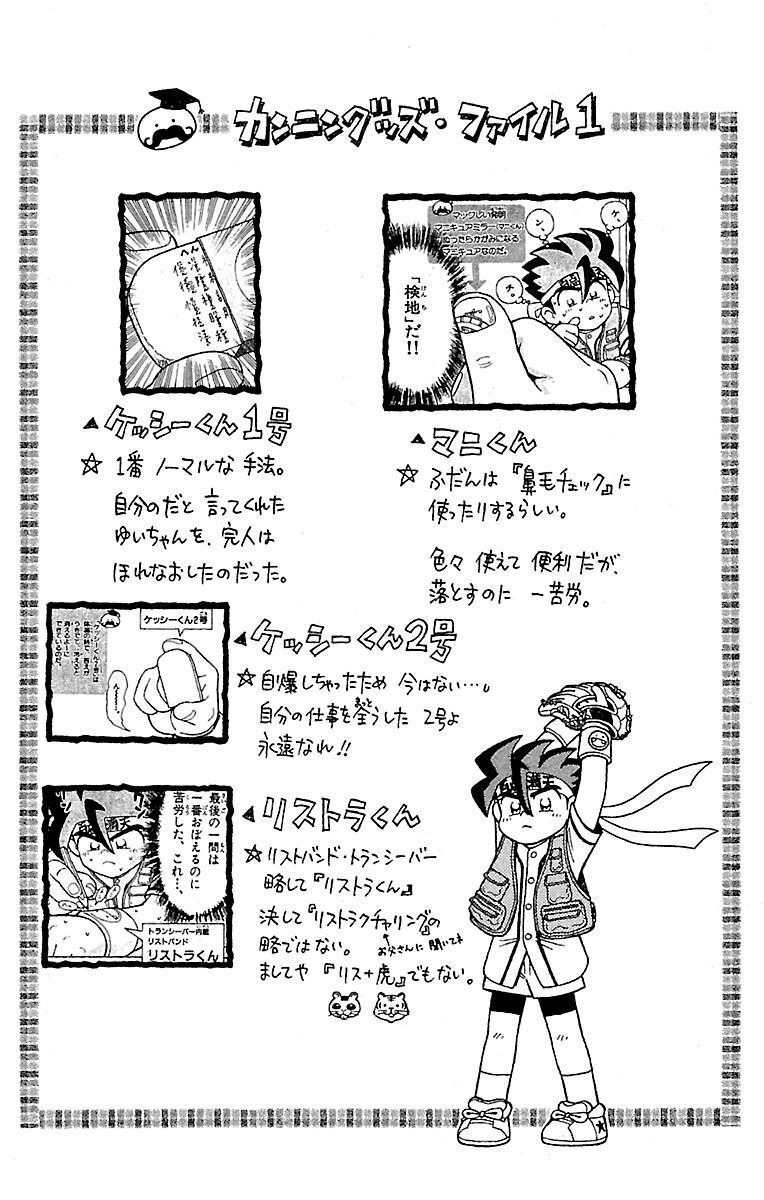 カンニングッズ・ファイル1
「検地」だ!!
けんち
マックしい発明
マニキュアミラー(マニくん)
ぬったらかがみになる
マニキュアなのだ。
▲ケッシーくん1号
☆1番 ノーマルな 手法。
自分のだと 言ってくれた
ゆいちゃんを、完人は
ほれなおしたのだった。
▲マニくん
☆ふだんは『鼻毛チェック』に
使ったりするらしい。
色々 使えて 便利だが、
落とすのに 一苦労。
ケッシーくん2号
▲ケッシーくん2号
☆自爆しちゃったため 今はない…。
自分の仕事を全うした 2号よ
まっと
永遠なれ!!
最後の一問は
一番おぼえるのに
苦労した、これ…、
トランシーバー内蔵
リストバンド
リストラくん
▲リストラくん
☆リストバンド・トランシーバー
略して『リストラくん』
決して『リストラクチャリング』の
略ではない。
お父さんに聞いてネ
ましてや『リス+虎』でもない。